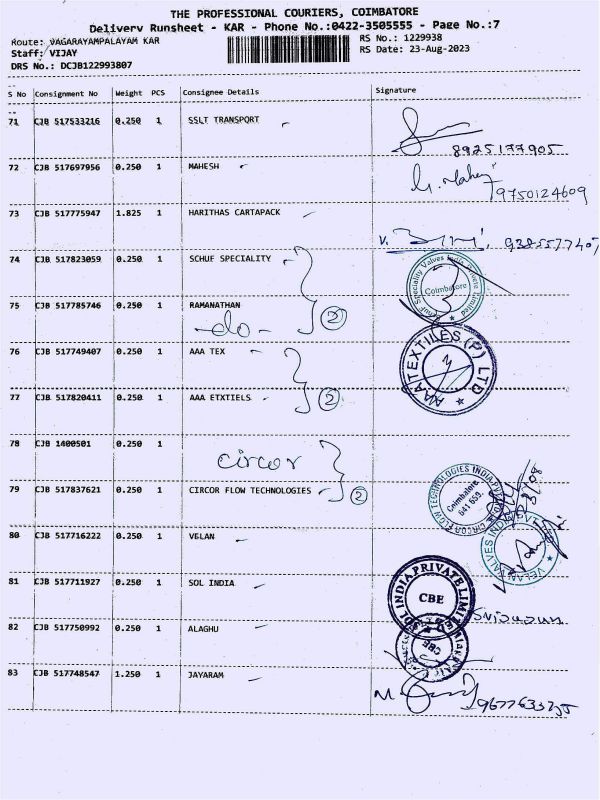 THE PROFESSIONAL COURIERS, COIMBATORE
Delivery Runsheet - KAR - Phone No.:0422-3505555 - Page No.:7
Route: VAGARAYAMPALAYAM KAR RS No.: 1229938
Staff: VIJAY RS Date: 23-Aug-2023
DRS No.: DCJB122993807
S No Consignment No Weight PCS Consignee Details Signature
71 CJB 517533216 0.250 1 SSLT TRANSPORT
8925177905
72 CJB 517697956 0.250 1 MAHESH
9750124609
73 CJB 517775947 1.825 1 HARITHAS CARTAPACK
74 CJB 517823059 0.250 1 SCHUF SPECIALITY
Schuf Speciality Valves India Private Limited
Coimbatore
75 CJB 517785746 0.250 1 RAMANATHAN
-do- 2
76 CJB 517749407 0.250 1 AAA TEX
AAA TEXTILES (P) LTD
77 CJB 517820411 0.250 1 AAA ETXTIELS 2
78 CJB 1400501 0.250 1
circor
79 CJB 517837621 0.250 1 CIRCOR FLOW TECHNOLOGIES 2
CIRCOR FLOW TECHNOLOGIES INDIA PVT
Coimbatore
641 659.
80 CJB 517716222 0.250 1 VELAN
VELAN VALVES INDIA PVT
81 CJB 517711927 0.250 1 SDL INDIA
SDL INDIA PRIVATE LIMITED
CBE
82 CJB 517750992 0.250 1 ALAGHU
CBE
83 CJB 517748547 1.250 1 JAYARAM